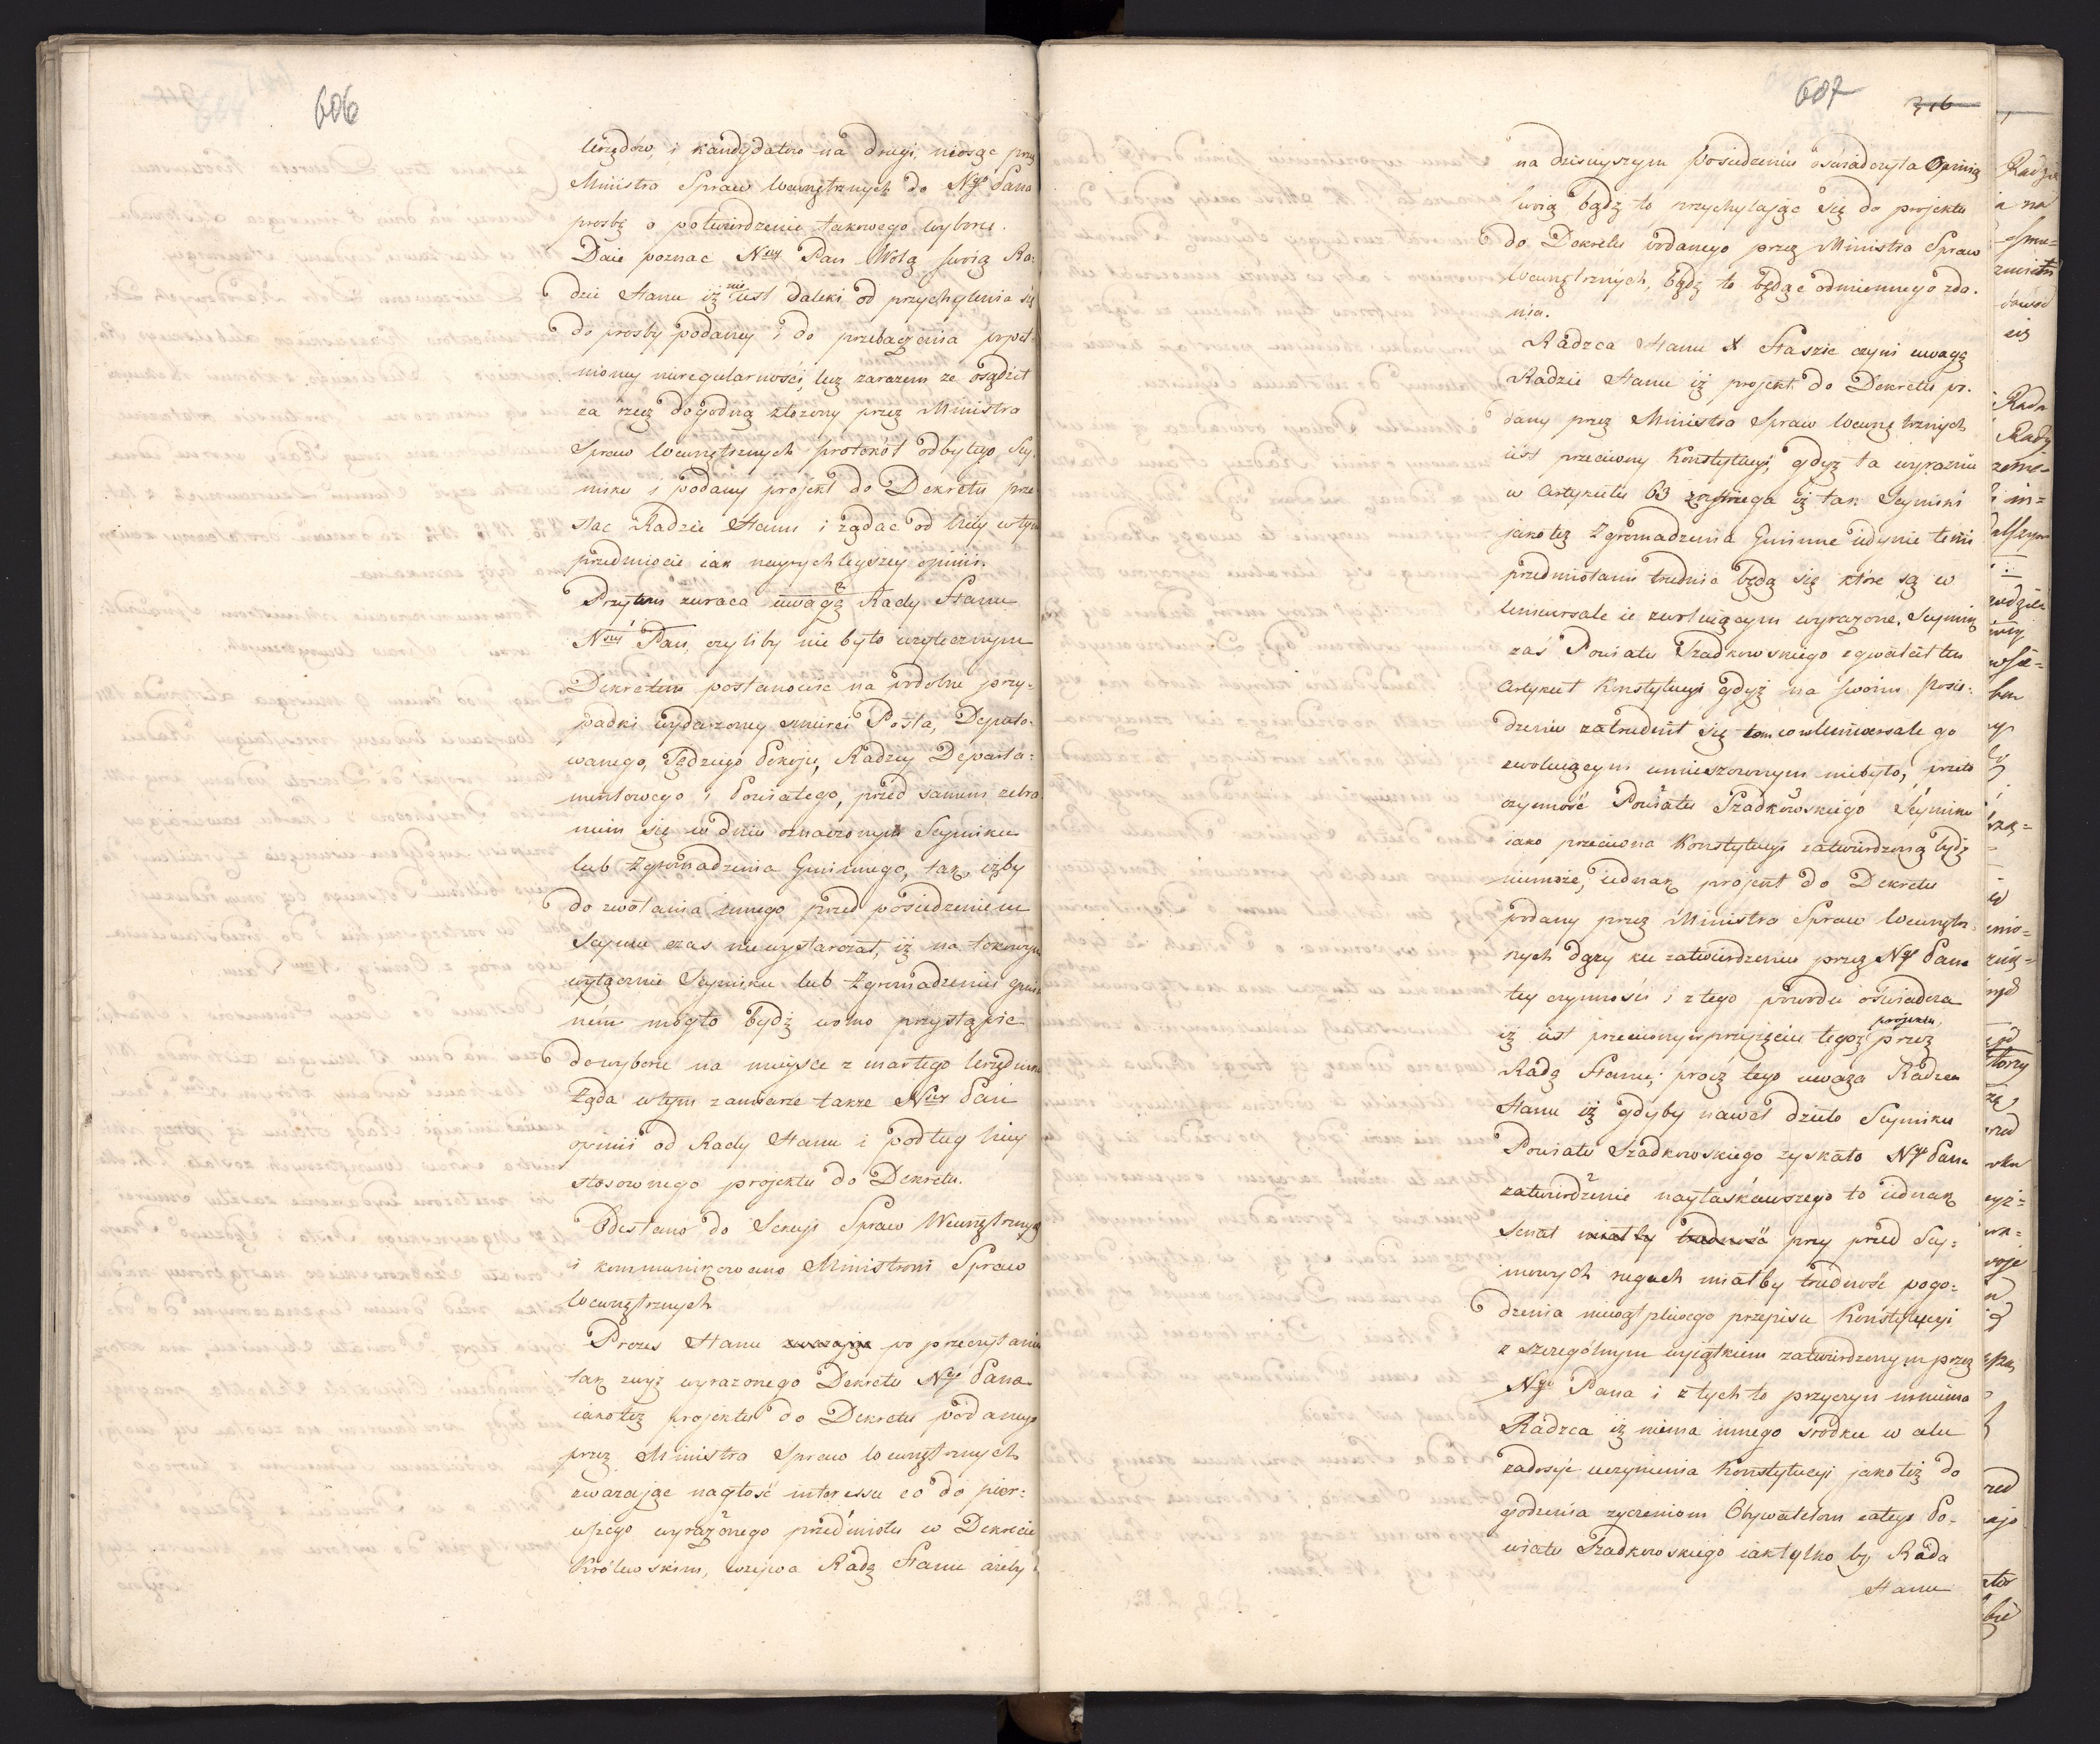 606
Urzędów, i kandydatów na drugi, niosąc przez
Ministra Spraw Wewnętrznych do Nygo Pana
prosbę o potwierdzenie takowego wyboru.
Daie poznac Nay Pan Wolą swoią Ra-
dzie Stanu iż nie iest daleki od przychylenia się
do prosby podaney i do przebaczenia popeł-
nioney nieregularnosci, lecz zarazem że osądził
za rzecz dogodną złożony przez Ministra
Spraw Wewnętrznych protokół odbytego Sey-
miku i podany projekt do Dekretu prze-
słac Radzie Stanu i żądac od Niey w tym
przedmiocie iak nayrychleyszey opinii.
Przytem zwraca uwagę Rady Stanu
Nay Pan, czyliby nie było użytecznym
Dekretem postanowic na podobne przy-
padki wydarzoney smierci Posła, Deputo-
wanego, Sędziego Pokoju, Radzcy Departa-
mentowego i Powiatego, przed samem zebra-
niem się w dniu oznaczonym Seymiku
lub Zgromadzenia Gminnego, tak, iżby
do zwołania innego przed posiedzeniem
Seymu czas niewystarczał, iż na takowym
wyłącznie Seymiku lub Zgromadzeniu gmin-
nem mogło bydź wolno przystąpic
do wyboru na mieysce zmarłego Urzędnika
Żąda w tym zamiarze także Nay Pan
opinii od Rady Stanu i podług Niey
stosownego projektu do Dekretu.
Odesłano do Sekcyi Spraw Wewnętrznych
i kommunikowano Ministrowi Spraw
Wewnętrznych
Prezes Stanu po przeczytaniu
tak zwyż wyrażonego Dekretu Nygo Pana
iakoteż projektu do Dekretu podanego
przez Ministra Spraw Wewnętrznych
zważając nagłość interessu co do pier-
wszego wyrażonego przedmiotu w Dekrecie
Królewskim, wzywa Radę Stanu ażeby
607
316
na dzisieyszym posiedzeniu oswiadczyła Opinię
swoią bądź to przychylając się do projektu
do Dekretu podanego przez Ministra Spraw
Wewnętrznych, bądź to będąc odmiennego zda-
nia.
Radzca Stanu X Staszic czyni uwagę
Radzie Stanu iż projekt do Dekretu po-
dany przez Ministra Spraw Wewnętrznych
iest przeciwny Konstytucyi, gdyż ta wyraznie
w Artykule 63 zastrzega iż tak Seymiki
jakoteż Zgromadzenia Gminne iedynie temi
przedmiotami trudnic będą się które są w
Uniwersale ie zwołuiącym wyrażone. Seymik
zaś Powiatu Szadkowskiego zgwałcił ten
Artykuł Konstytucyi gdyż na swoim posie-
dzeniu zatrudnił się tem co w Uniwersale go
zwołuiącym umieszczonym niebyło, przeto
czynność Powiatu Szadkowskiego Seymiku
iako przeciwna Konstytucyi zatwierdzoną bydź
niemoże, iednak projekt do Dekretu
podany przez Ministra Spraw Wewnętrz-
nych dąży ku zatwierdzeniu przez Nygo Pana
tey czynności i z tego powodu oświadcza
iż iest przeciwny przyięciu tegoż projektu przez
Radę Stanu; prócz tego uważa Radzca
Stanu iż gdyby nawet dzieło Seymiku
Powiatu Szadkowskiego zyskało Nygo Pana
zatwierdzenie nayłaskawszego to iednak
Senat miałby trudność przy przed Sey-
mowych rugach miałby trudność pogo-
dzenia niewątpliwego przepisu Konstytucyi
z szczególnym wyiątkiem zatwierdzonym przez
Nygo Pana i z tych to przyczyn mniema
Radzca iż niema innego srodku w celu
zadosyć uczynienia Konstytucyi jakoteż do
godzenia życzeniom Obywatelom całego Po-
wiatu Szadkowskiego iak tylko by Rada
Stanu